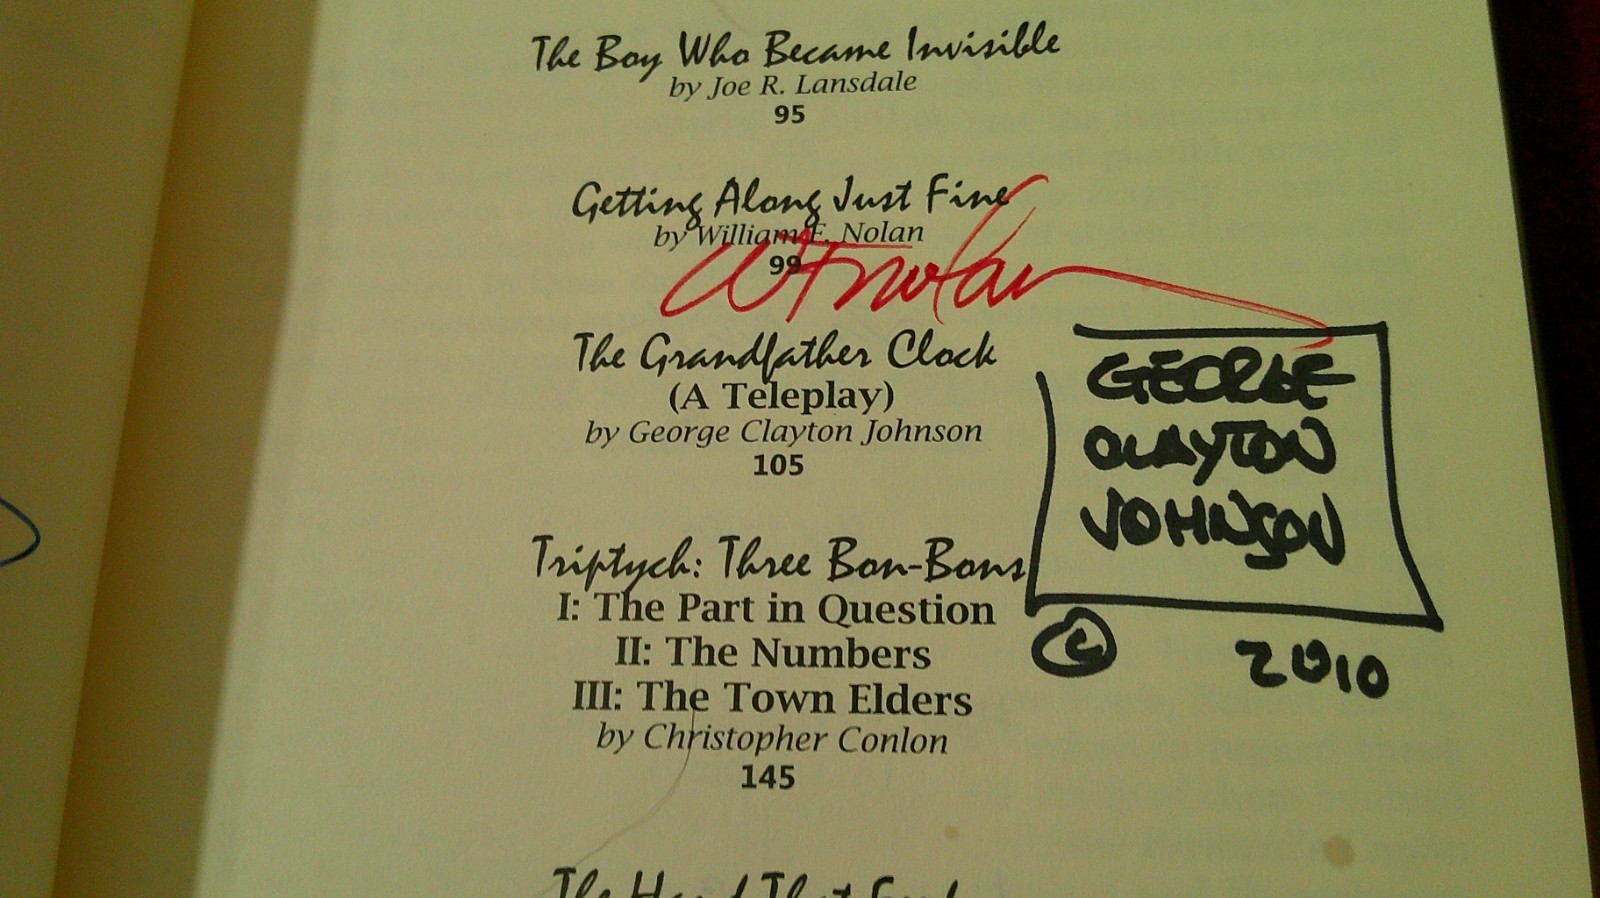 The Boy Who Became Invisible
by Joe R. Lansdale
95
Getting Along Just Fine
by William F. Nolan
99
WF Nolan
The Grandfather Clock
(A Teleplay)
by George Clayton Johnson
105
GEORGE
CLAYTON
JOHNSON
© 2010
Triptych: Three Bon-Bons
I: The Part in Question
II: The Numbers
III: The Town Elders
by Christopher Conlon
145
The Hand That